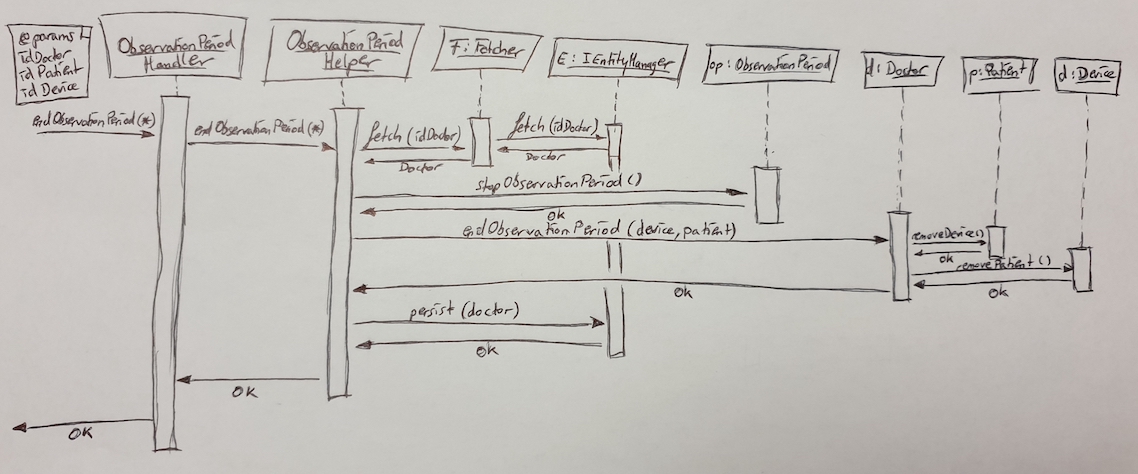 @params
idDoctor
idPatient
idDevice
ObservationPeriod
Handler
ObservationPeriod
Helper
F: Fetcher
E: IEntityManager
op: ObservationPeriod
d: Doctor
p: Patient
d: Device
endObservationPeriod(*)
endObservationPeriod(*)
fetch (idDoctor)
Doctor
fetch (idDoctor)
Doctor
stopObservationPeriod()
ok
endObservationPeriod (device, patient)
removeDevice()
ok
removePatient()
OK
OK
persist (doctor)
OK
OK
OK